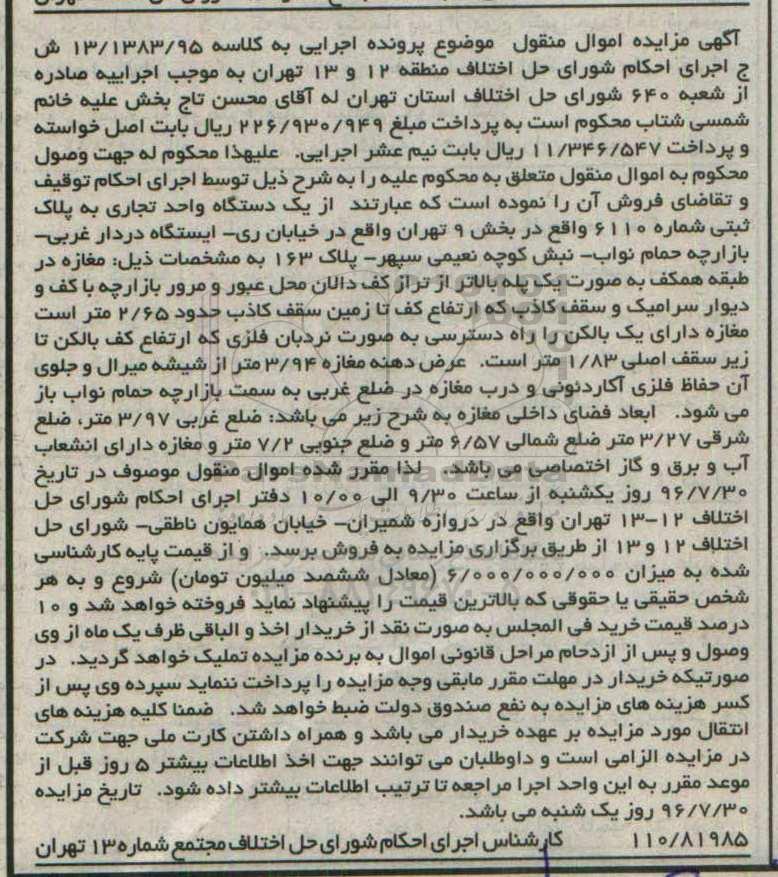 آگهی مزایده اموال منقول موضوع پرونده اجرایی به کلاسه ۱۳/۱۳۸۳/۹۵ ش
ج اجرای احکام شورای حل اختلاف منطقه ۱۲ و ۱۳ تهران به موجب اجراییه صادره
از شعبه ۶۴۰ شورای حل اختلاف استان تهران له آقای محسن تاج بخش علیه خانم
شمسی شتاب محکوم است به پرداخت مبلغ ۲۲۶/۹۳۰/۹۴۹ ریال بابت اصل خواسته
و پرداخت ۱۱/۳۴۶/۵۴۷ ریال بابت نیم عشر اجرایی. علیهذا محکوم له جهت وصول
محکوم به اموال منقول متعلق به محکوم علیه را به شرح ذیل توسط اجرای احکام توقیف
و تقاضای فروش آن را نموده است که عبارتند از یک دستگاه واحد تجاری به پلاک
ثبتی شماره ۶۱۱۰ واقع در بخش ۹ تهران واقع در خیابان ری- ایستگاه دردار غربی-
بازارچه حمام نواب- نبش کوچه نعیمی سپهر- پلاک ۱۶۳ به مشخصات ذیل: مغازه در
طبقه همکف به صورت یک پله بالاتر از تراز کف دالان محل عبور و مرور بازارچه با کف و
دیوار سرامیک و سقف کاذب که ارتفاع کف تا زمین سقف کاذب حدود ۲/۶۵ متر است
مغازه دارای یک بالکن را راه دسترسی به صورت نردبان فلزی که ارتفاع کف بالکن تا
زیر سقف اصلی ۱/۸۳ متر است. عرض دهنه مغازه ۳/۹۴ متر از شیشه میرال و جلوی
آن حفاظ فلزی آکاردئونی و درب مغازه در ضلع غربی به سمت بازارچه حمام نواب باز
می شود. ابعاد فضای داخلی مغازه به شرح زیر می باشد: ضلع غربی ۳/۹۷ متر، ضلع
شرقی ۳/۲۷ متر ضلع شمالی ۶/۵۷ متر و ضلع جنوبی ۷/۲ متر و مغازه دارای انشعاب
آب و برق و گاز اختصاصی می باشد. لذا مقرر شده اموال منقول موصوف در تاریخ
۹۶/۷/۳۰ روز یکشنبه از ساعت ۹/۳۰ الی ۱۰/۰۰ دفتر اجرای احکام شورای حل
اختلاف ۱۲-۱۳ تهران واقع در دروازه شمیران- خیابان همایون ناطقی- شورای حل
اختلاف ۱۲ و ۱۳ از طریق برگزاری مزایده به فروش برسد. و از قیمت پایه کارشناسی
شده به میزان ۶/۰۰۰/۰۰۰/۰۰۰ (معادل ششصد میلیون تومان) شروع و به هر
شخص حقیقی یا حقوقی که بالاترین قیمت را پیشنهاد نماید فروخته خواهد شد و ۱۰
درصد قیمت خرید فی المجلس به صورت نقد از خریدار اخذ و الباقی ظرف یک ماه از وی
وصول و پس از ازدحام مراحل قانونی اموال به برنده مزایده تملیک خواهد گردید. در
صورتیکه خریدار در مهلت مقرر مابقی وجه مزایده را پرداخت ننماید سپرده وی پس از
کسر هزینه های مزایده به نفع صندوق دولت ضبط خواهد شد. ضمنا کلیه هزینه های
انتقال مورد مزایده بر عهده خریدار می باشد و همراه داشتن کارت ملی جهت شرکت
در مزایده الزامی است و داوطلبان می توانند جهت اخذ اطلاعات بیشتر ۵ روز قبل از
موعد مقرر به این واحد اجرا مراجعه تا ترتیب اطلاعات بیشتر داده شود. تاریخ مزایده
۹۶/۷/۳۰ روز یک شنبه می باشد.
۱۱۰/۸۱۹۸۵ کارشناس اجرای احکام شورای حل اختلاف مجتمع شماره ۱۳ تهران